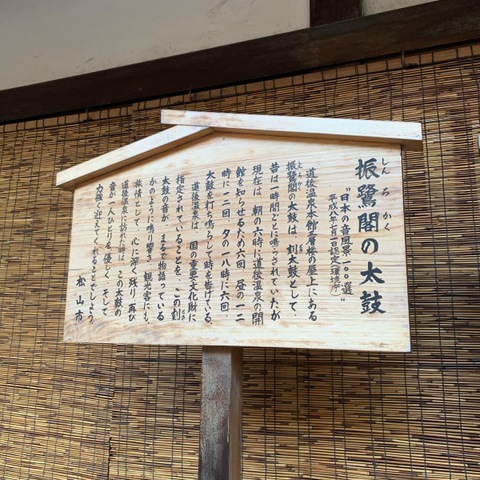 振鷺閣の太鼓
しんろかく
"日本の音風景一〇〇選"
道後温泉本館三層楼の屋上にある
振鷺閣の太鼓は、刻太鼓として、
昔は一時間ごとに鳴らされていたが
現在は、朝の六時に道後温泉の開
館を知らせるため六回、昼の一二
時に一二回、夕の一八時に六回
太鼓を打ち鳴らして時を告げている。
道後温泉は、国の重要文化財に
指定されていることを、この刻
太鼓の音が、まるで物語っている
かのように鳴り響き、観光客にも、
旅情として、心に深く残り、再び
道後温泉に訪れた時は、この太鼓の
音が一人ひとりを優しく、そして
力強く迎えてくれることでしょう。
松山市